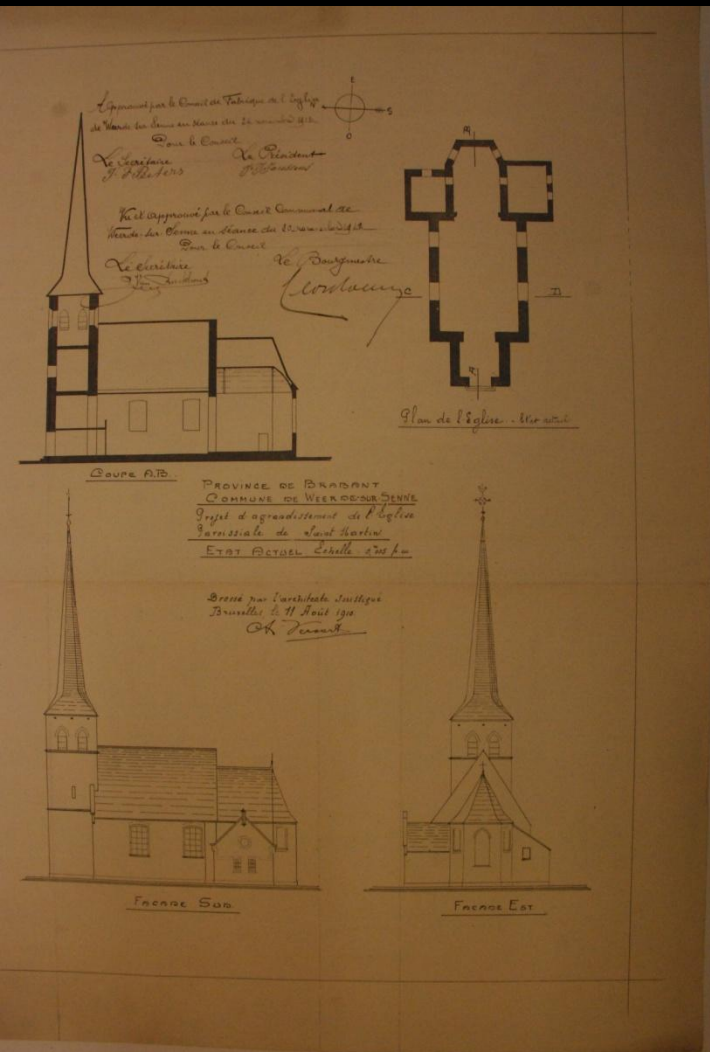 Approuvé par le Conseil de Fabrique de l'Eglise
de Weerde sur Senne en séance du 1910.
Pour le Conseil
Le Secrétaire Le Président
Vu et approuvé par le Conseil Communal de
Weerde-sur-Senne en séance du
Pour le Conseil
Le Secrétaire Le Bourgmestre
E
N S
O
A
C D
B
Plan de l'Eglise. Etat actuel
COUPE A.B.
PROVINCE DE BRABANT
COMMUNE DE WEERDE-SUR-SENNE
Projet d'agrandissement de l'Eglise
Paroissiale de Saint Martin
ETAT ACTUEL Echelle:
Dressé par l'architecte soussigné
Bruxelles le 11 Août 1910.
FACADE SUD.
FACADE EST.